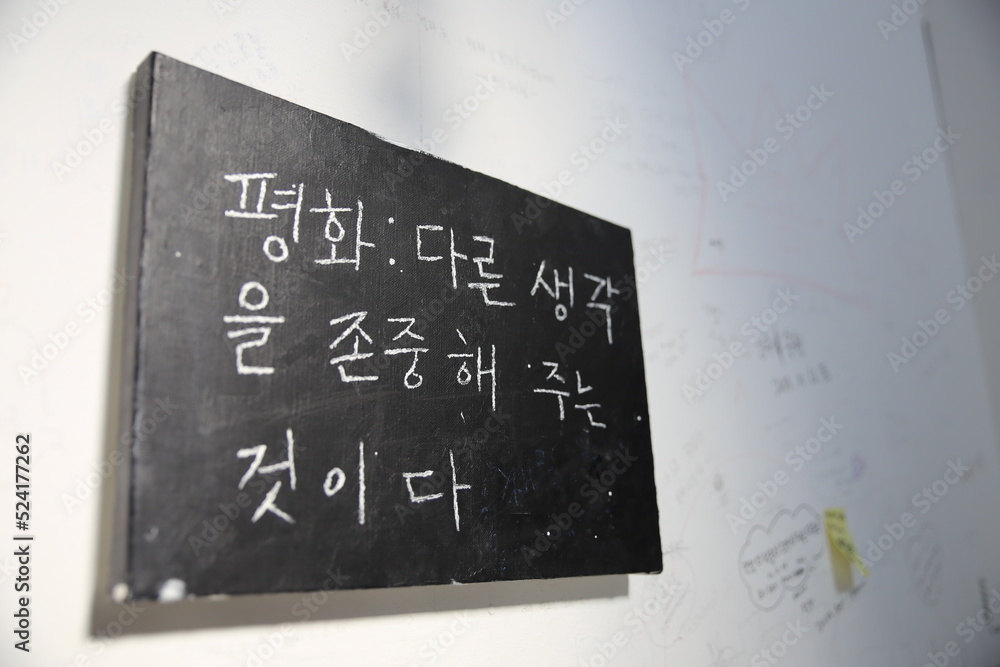 평화: 다른 생각
을 존중해 주는
것이다
Adobe Stock | #524177262